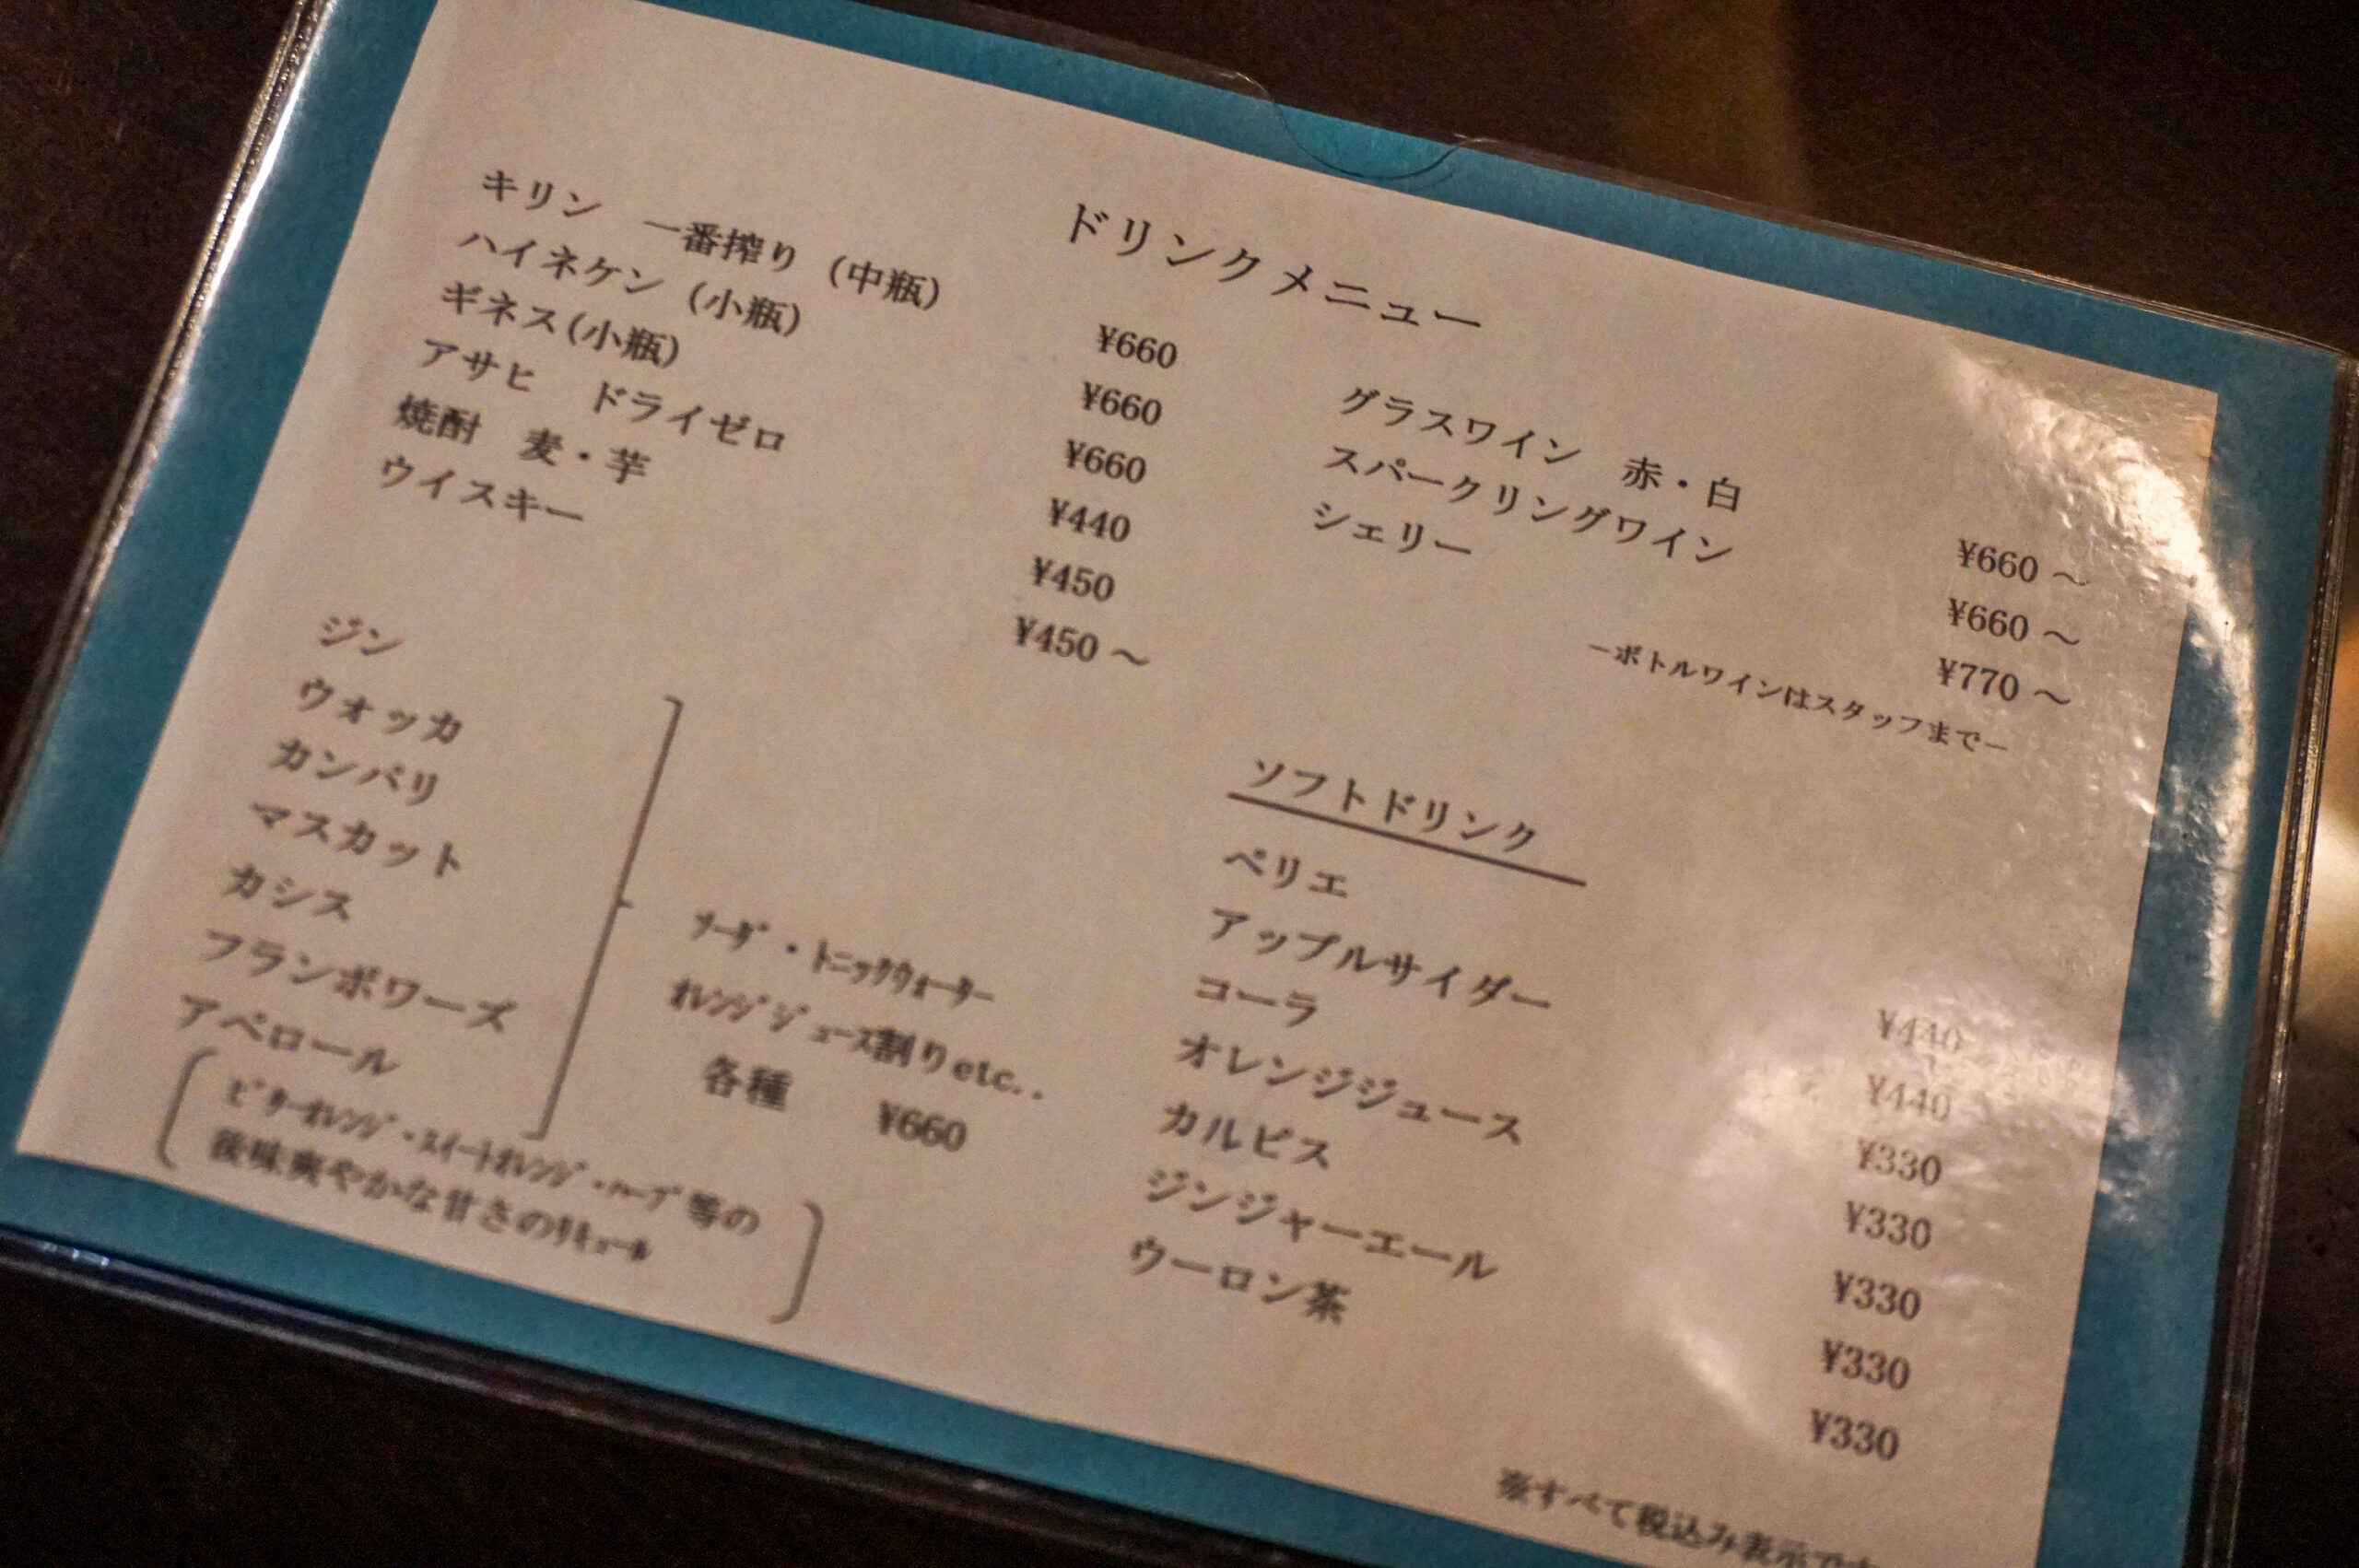 ドリンクメニュー
キリン 一番搾り (中瓶) ¥660
ハイネケン (小瓶) ¥660
ギネス(小瓶) ¥660
アサヒ ドライゼロ ¥440
焼酎 麦・芋 ¥450
ウイスキー ¥450 ～
グラスワイン 赤・白 ¥660 ～
スパークリングワイン ¥660 ～
シェリー ¥770 ～
－ボトルワインはスタッフまで－
ジン
ウォッカ
カンパリ
マスカット
カシス
フランボワーズ
アペロール
ｿｰﾀﾞ・ﾄﾆｯｸｳｫｰﾀｰ
ｵﾚﾝｼﾞｼﾞｭｰｽ割りetc..
各種 ¥660
ﾋﾞﾀｰｵﾚﾝｼﾞ・ｽｲｰﾄｵﾚﾝｼﾞ・ﾊｰﾌﾞ等の
後味爽やかな甘さのﾘｷｭｰﾙ
ソフトドリンク
ペリエ ¥440
アップルサイダー ¥440
コーラ ¥330
オレンジジュース ¥330
カルピス ¥330
ジンジャーエール ¥330
ウーロン茶 ¥330
※すべて税込み表示です